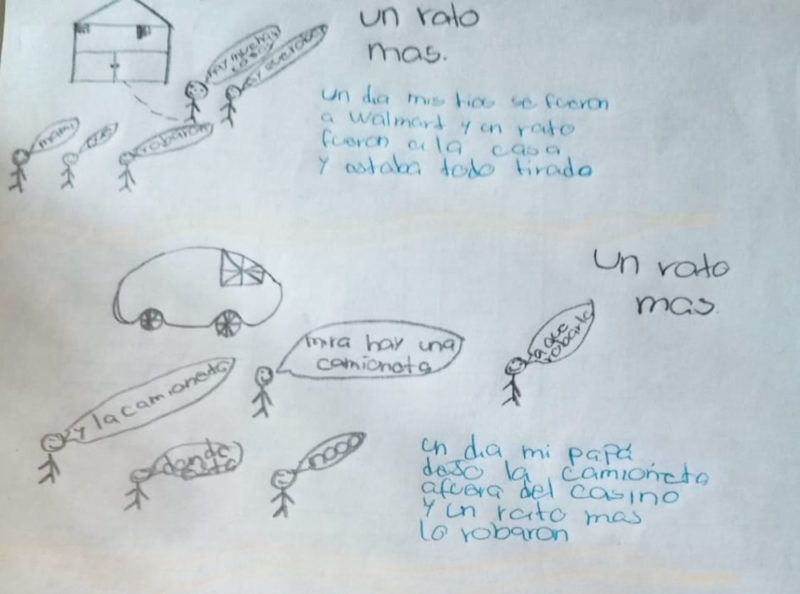 un rato
mas.
hay muchas
cosas
y que robar
mami
que
robaron
un dia mis tios se fueron
a Walmart y un rato
fueron a la casa
y estaba todo tirado
un rato
mas.
mira hay una
camioneta
a que
robarla
y la camioneta
donde
esta
nooo
un dia mi papá
dejo la camioneta
afuera del casino
y un rato mas
lo robaron